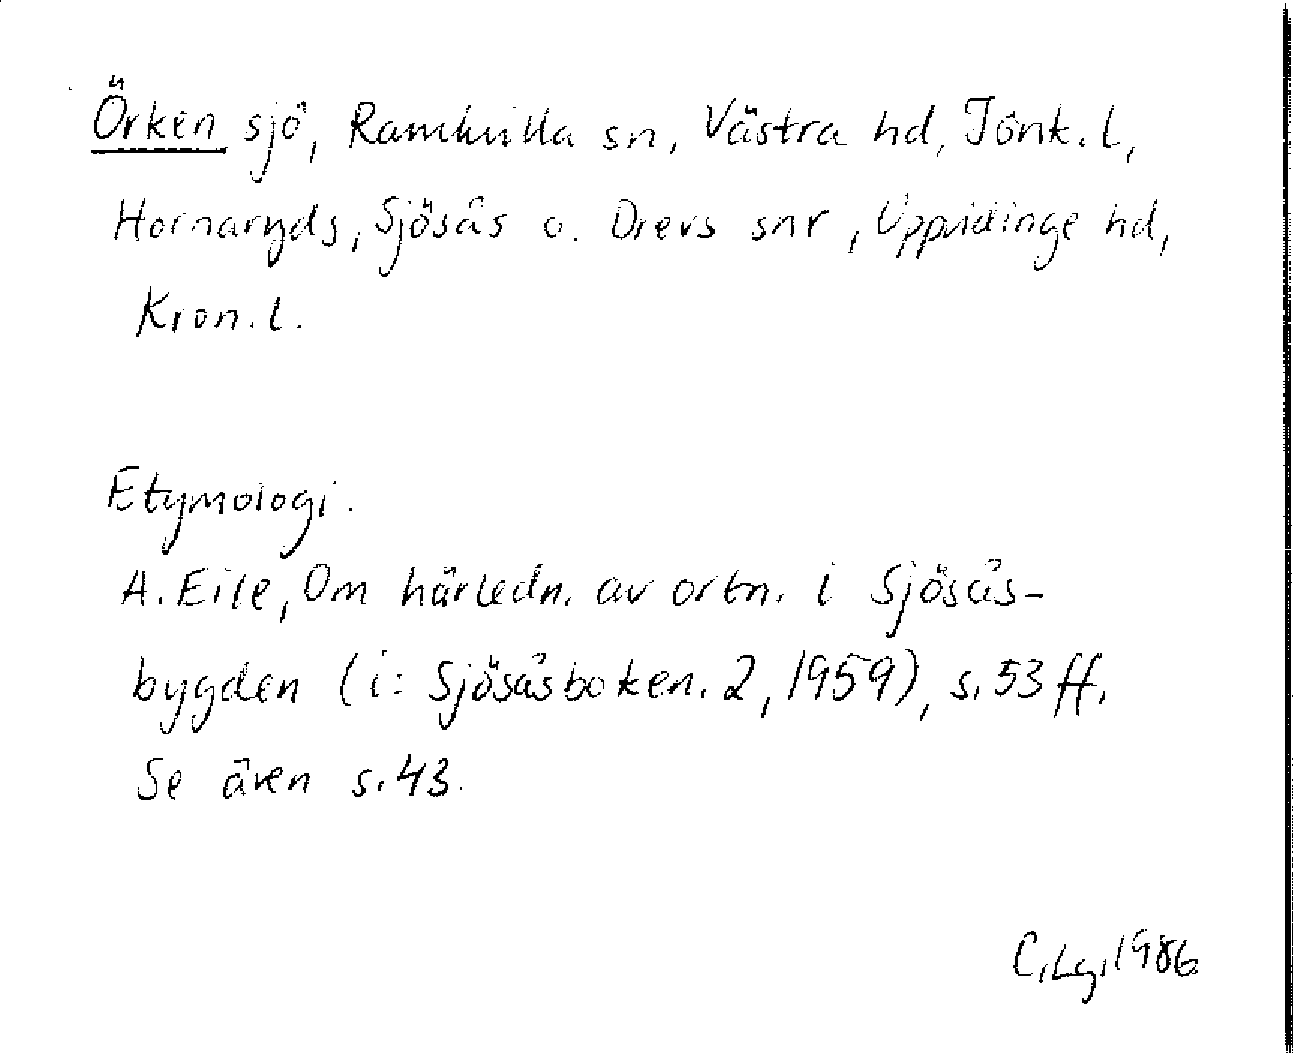 Örken sjö, Ramkvilla sn, Västra hd, Jönk. l,
Hornaryds, Sjösås o. Drevs snr, Uppvidinge hd,
Kron. l.
Etymologi.
A. Eile, Om härledn. av ortn. i Sjösås-
bygden (i: Sjösåsboken. 2, 1959), s. 53 ff.
Se även s. 43.
C. Lg, 1986